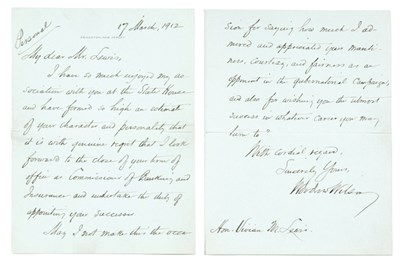 Personal
17 March, 1912
My dear Mr. Lewis,
I have so much enjoyed my as-
sociation with you at the State House
and have formed so high an estimate
of your character and personality that
it is with genuine regret that I look
forward to the close of your term of
office as Commissioner of Banking and
Insurance and undertake the duty of
appointing your successor.
May I not make this the occa-
sion for saying how much I ad-
mired and appreciated your manli-
ness, courtesy, and fairness as an
opponent in the gubernatorial campaign,
and also for wishing you the utmost
success in whatever career you may
turn to?
With cordial regard,
Sincerely Yours,
Woodrow Wilson
Hon. Vivian M. Lewis.